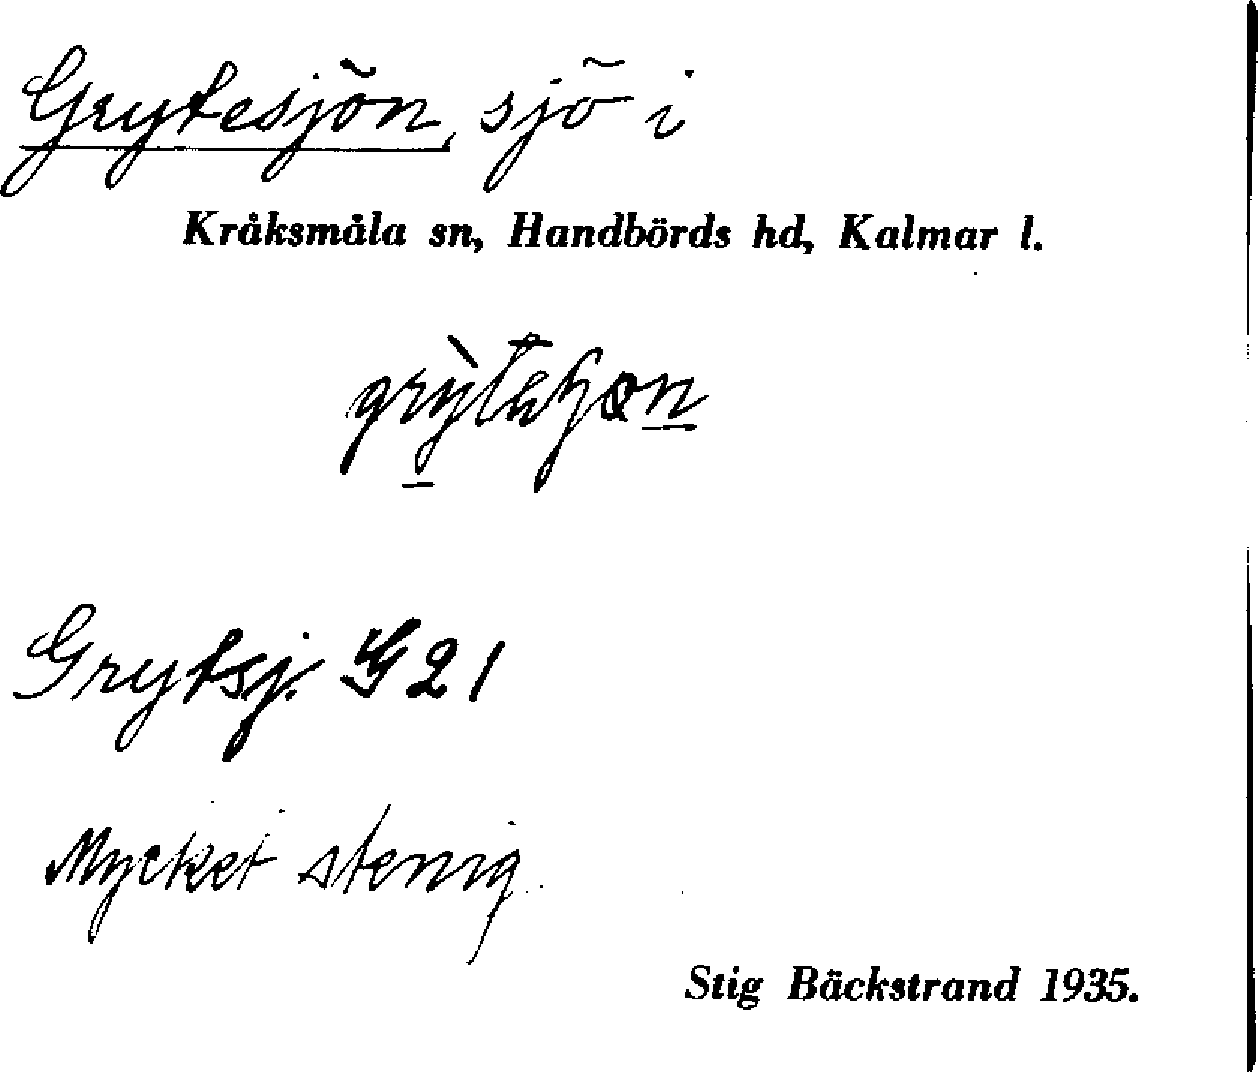 Grytesjön, sjö i
Kråksmåla sn, Handbörds hd, Kalmar l.
Grytsj. G 21
Mycket stenig.
Stig Bäckstrand 1935.